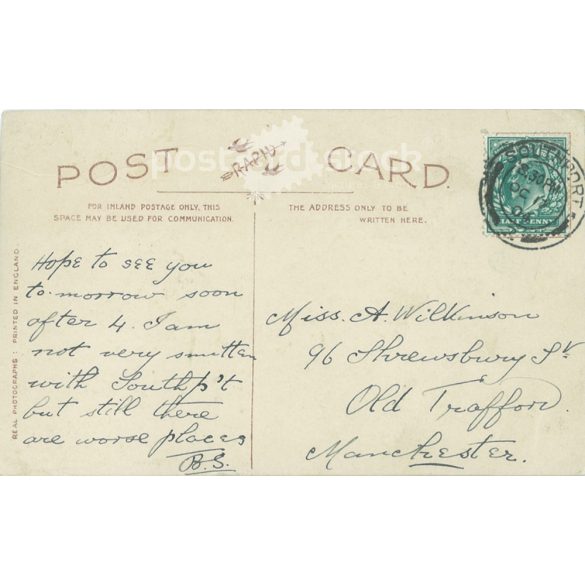 POST CARD.
RAPID
FOR INLAND POSTAGE ONLY, THIS
SPACE MAY BE USED FOR COMMUNICATION.
THE ADDRESS ONLY TO BE
WRITTEN HERE.
REAL PHOTOGRAPHS: PRINTED IN ENGLAND.
Hope to see you
to-morrow soon
after 4. I am
not very smitten
with Southp't
but still there
are worse places
B.S.
Miss. A. Wilkinson
96 Shrewsbury St.
Old Trafford.
Manchester.
SOUTHPORT
5.30 PM
OC
HALFPENNY